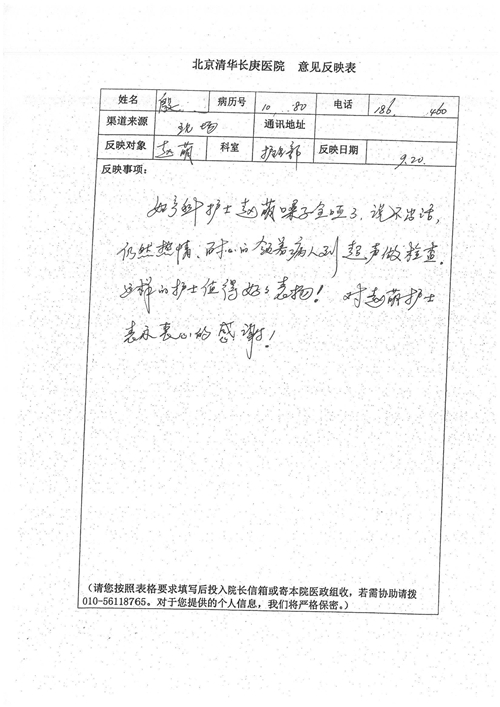 北京清华长庚医院 意见反映表
姓名 殷 病历号 10 80 电话 186 460
渠道来源 现场 通讯地址
反映对象 赵萌 科室 护理部 反映日期 9.20.
反映事项：
妇产科护士赵萌嗓子全哑了，说不出话，
仍然热情、耐心的领着病人到超声做检查。
这样的护士值得好好表扬！ 对赵萌护士
表示衷心的感谢！
(请您按照表格要求填写后投入院长信箱或寄本院医政组收，若需协助请拨
010-56118765。对于您提供的个人信息，我们将严格保密。)